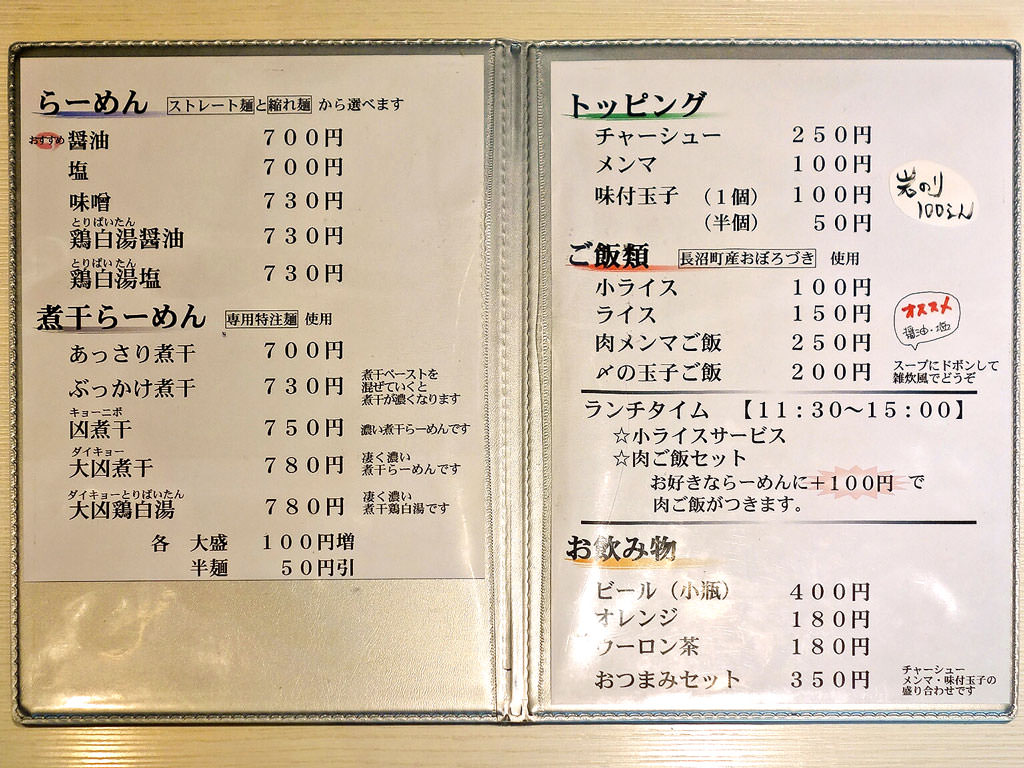 らーめん ストレート麺と縮れ麺 から選べます
おすすめ 醤油 700円
塩 700円
味噌 730円
とりぱいたん
鶏白湯醤油 730円
とりぱいたん
鶏白湯塩 730円
煮干らーめん 専用特注麺 使用
あっさり煮干 700円
ぶっかけ煮干 730円 煮干ペーストを
混ぜていくと
煮干が濃くなります
キョーニボ
凶煮干 750円 濃い煮干らーめんです
ダイキョー
大凶煮干 780円 凄く濃い
煮干らーめんです
ダイキョーとりぱいたん
大凶鶏白湯 780円 凄く濃い
煮干鶏白湯です
各 大盛 100円増
半麺 50円引
トッピング
チャーシュー 250円
メンマ 100円
味付玉子 (1個) 100円
(半個) 50円
岩のり
100えん
ご飯類 長沼町産おぼろづき 使用
小ライス 100円
ライス 150円
肉メンマご飯 250円
〆の玉子ご飯 200円
オススメ
醤油・塩
スープにドボンして
雑炊風でどうぞ
ランチタイム 【11:30〜15:00】
☆小ライスサービス
☆肉ご飯セット
お好きならーめんに+100円 で
肉ご飯がつきます。
お飲み物
ビール (小瓶) 400円
オレンジ 180円
ウーロン茶 180円
おつまみセット 350円 チャーシュー
メンマ・味付玉子の
盛り合わせです